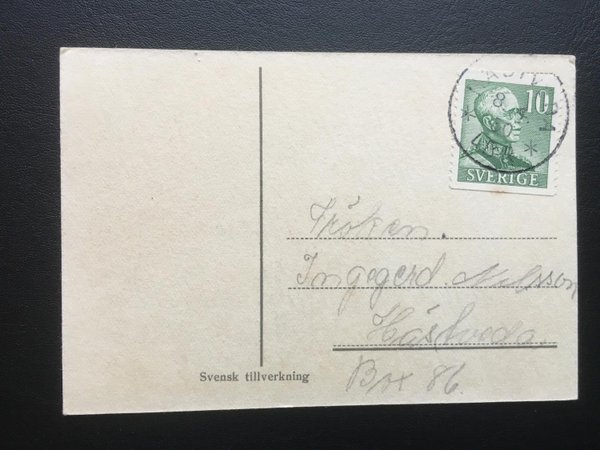 10
SVERIGE
Fröken.
Ingegerd. Nilsson
Hästveda.
Box 86.
Svensk tillverkning